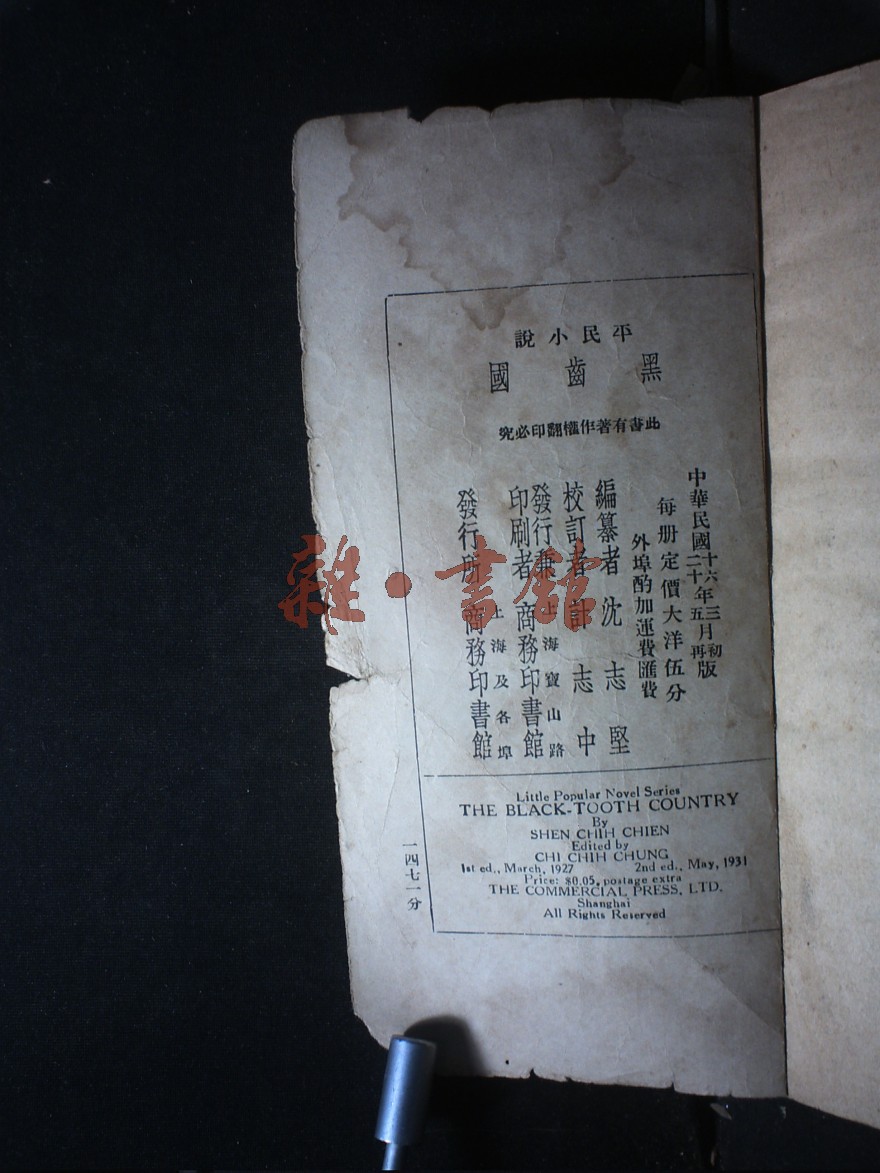 平民小說
黑齒國
此書有著作權翻印必究
中華民國十六年三月初版
二十年五月再版
每册定價大洋伍分
外埠酌加運費匯費
編纂者 沈志堅
校訂者 計志中
發行兼印刷者 上海寶山路 商務印書館
發行所 上海及各埠 商務印書館
Little Popular Novel Series
THE BLACK-TOOTH COUNTRY
By
SHEN CHIH CHIEN
Edited by
CHI CHIH CHUNG
1st ed., March, 1927 2nd ed., May, 1931
Price: $0.05, postage extra
THE COMMERCIAL PRESS, LTD.
Shanghai
All Rights Reserved
一四七一分
雜·書館